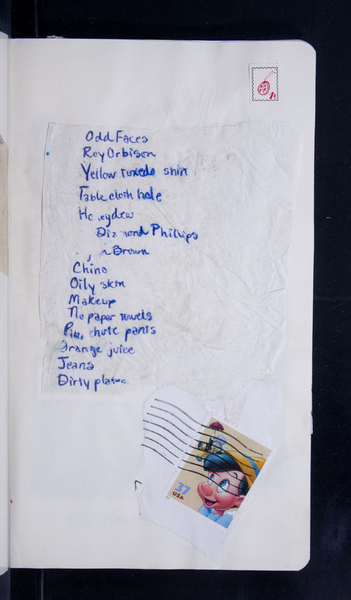 Odd Faces
Roy Orbison
Yellow tuxedo shirt
Table cloth hole
Ho eydew
Phillips
Brown
Chino
Oily skin
Makeup
No paper towels
chute pants
Orange juice
Jeans
Dirty
37
USA